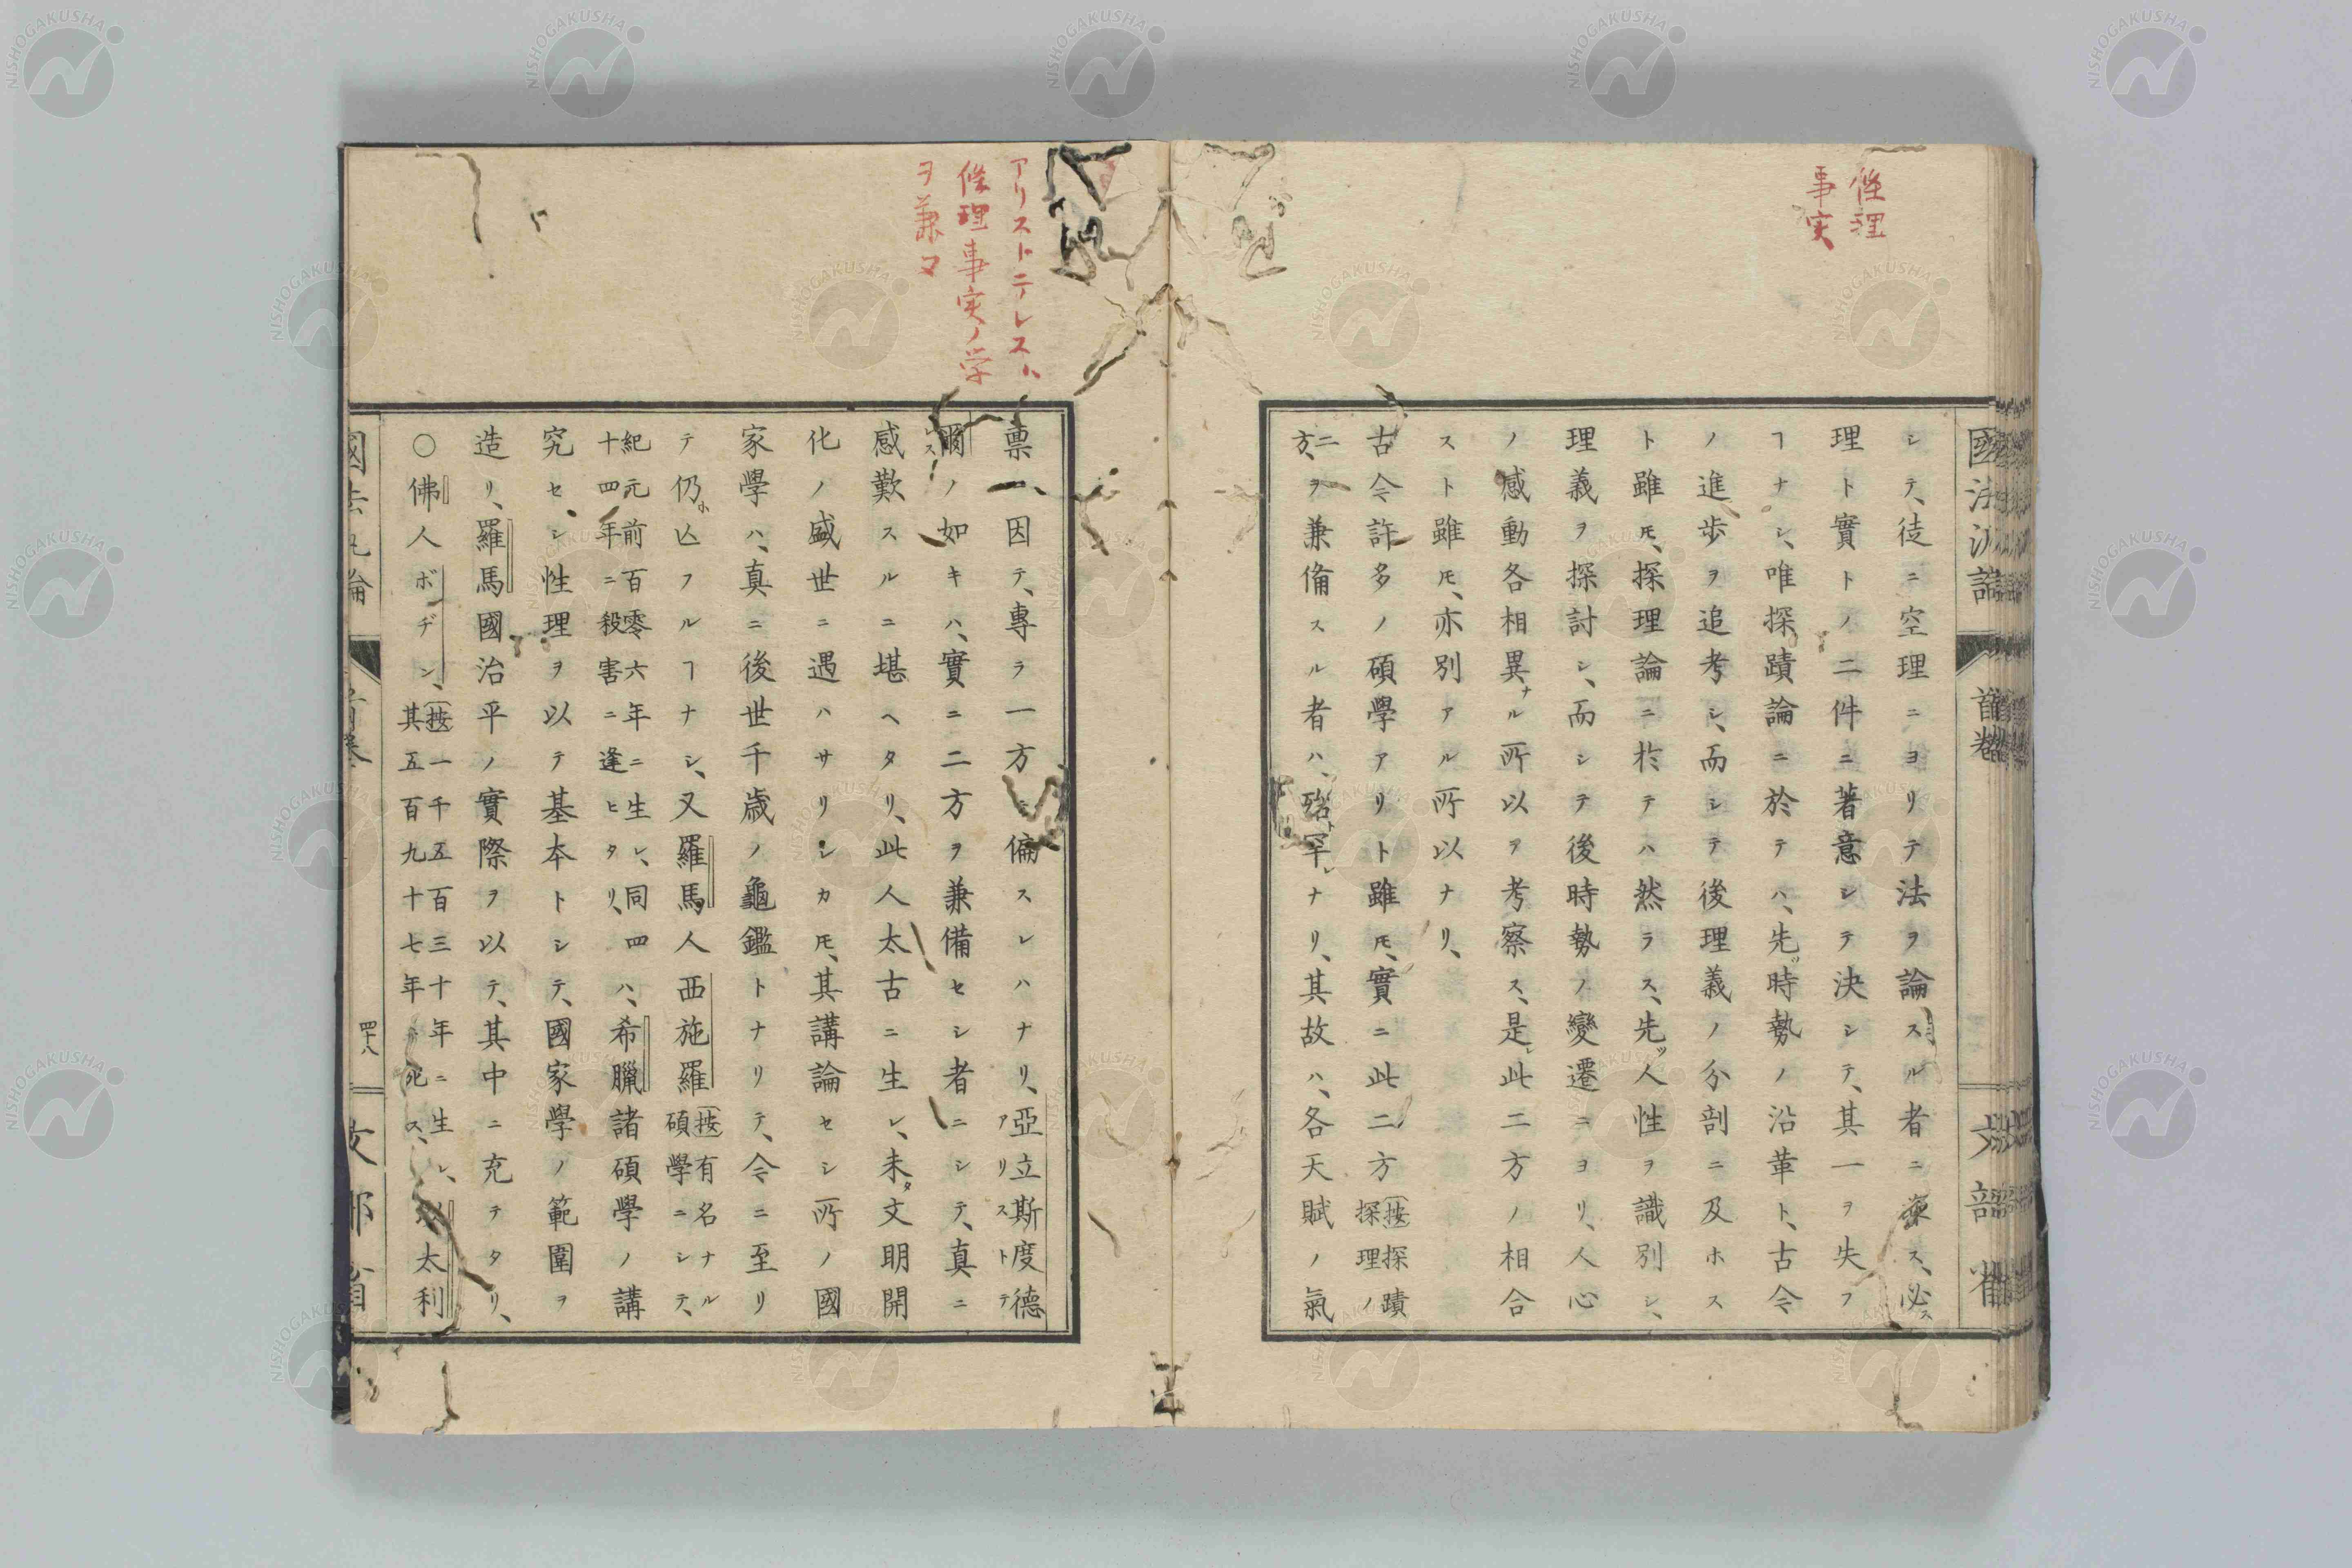 條理
事実
國法汎論
首卷
文部省
シテ、徒ニ空理ニヨリテ法ヲ論スル者ニ變ス、必ス
理ト實トノ二件ニ著意シテ決シテ、其一ヲ失フ
ヿナシ、唯探蹟論ニ於テハ、先ツ時勢ノ沿革ト、古今
ノ進歩ヲ追考シ、而シテ後理義ノ分剖ニ及ホス
ト雖𪜈、探理論ニ於テハ然ラス、先ツ人性ヲ識別シ、
理義ヲ探討シ、而シテ後時勢ノ變遷ニヨリ、人心
ノ感動各相異ナル所以ヲ考察ス、是レ此二方ノ相合
スト雖𪜈、亦別アル所以ナリ、
古今許多ノ碩學アリト雖𪜈、實ニ此二方(按探蹟探理ノ
二方、ヲ兼備スル者ハ、殆ト罕レナリ、其故ハ、各天賦ノ氣
アリストテレスハ
條理事実ノ学
ヲ兼ヌ
稟ニ因テ、專ラ一方ニ偏スレハナリ、亞立斯度德アリストテ
爾レスノ如キハ、實ニ二方ヲ兼備セシ者ニシテ、真ニ
感歎スルニ堪ヘタリ、此人太古ニ生レ、未タ文明開
化ノ盛世ニ遇ハサリシカ𪜈、其講論セシ所ノ國
家學ハ、真ニ後世千歳ノ龜鑑トナリテ、今ニ至リ
テ仍ホ亾フルヿナシ、又羅馬人西施羅(按有名ナル碩學ニシテ、
紀元前百零六年ニ生レ、同四十四年ニ殺害ニ逢ヒタリ、ハ、希臘諸碩學ノ講
究セシ性理ヲ以テ基本トシテ、國家學ノ範圍ヲ
造リ、羅馬國治平ノ實際ヲ以テ、其中ニ充テタリ、
○佛人ボヂン、(按一千五百三十年ニ生レ、其五百九十七年ニ死ス、以太利
國法汎論
首卷
四十八
文部省